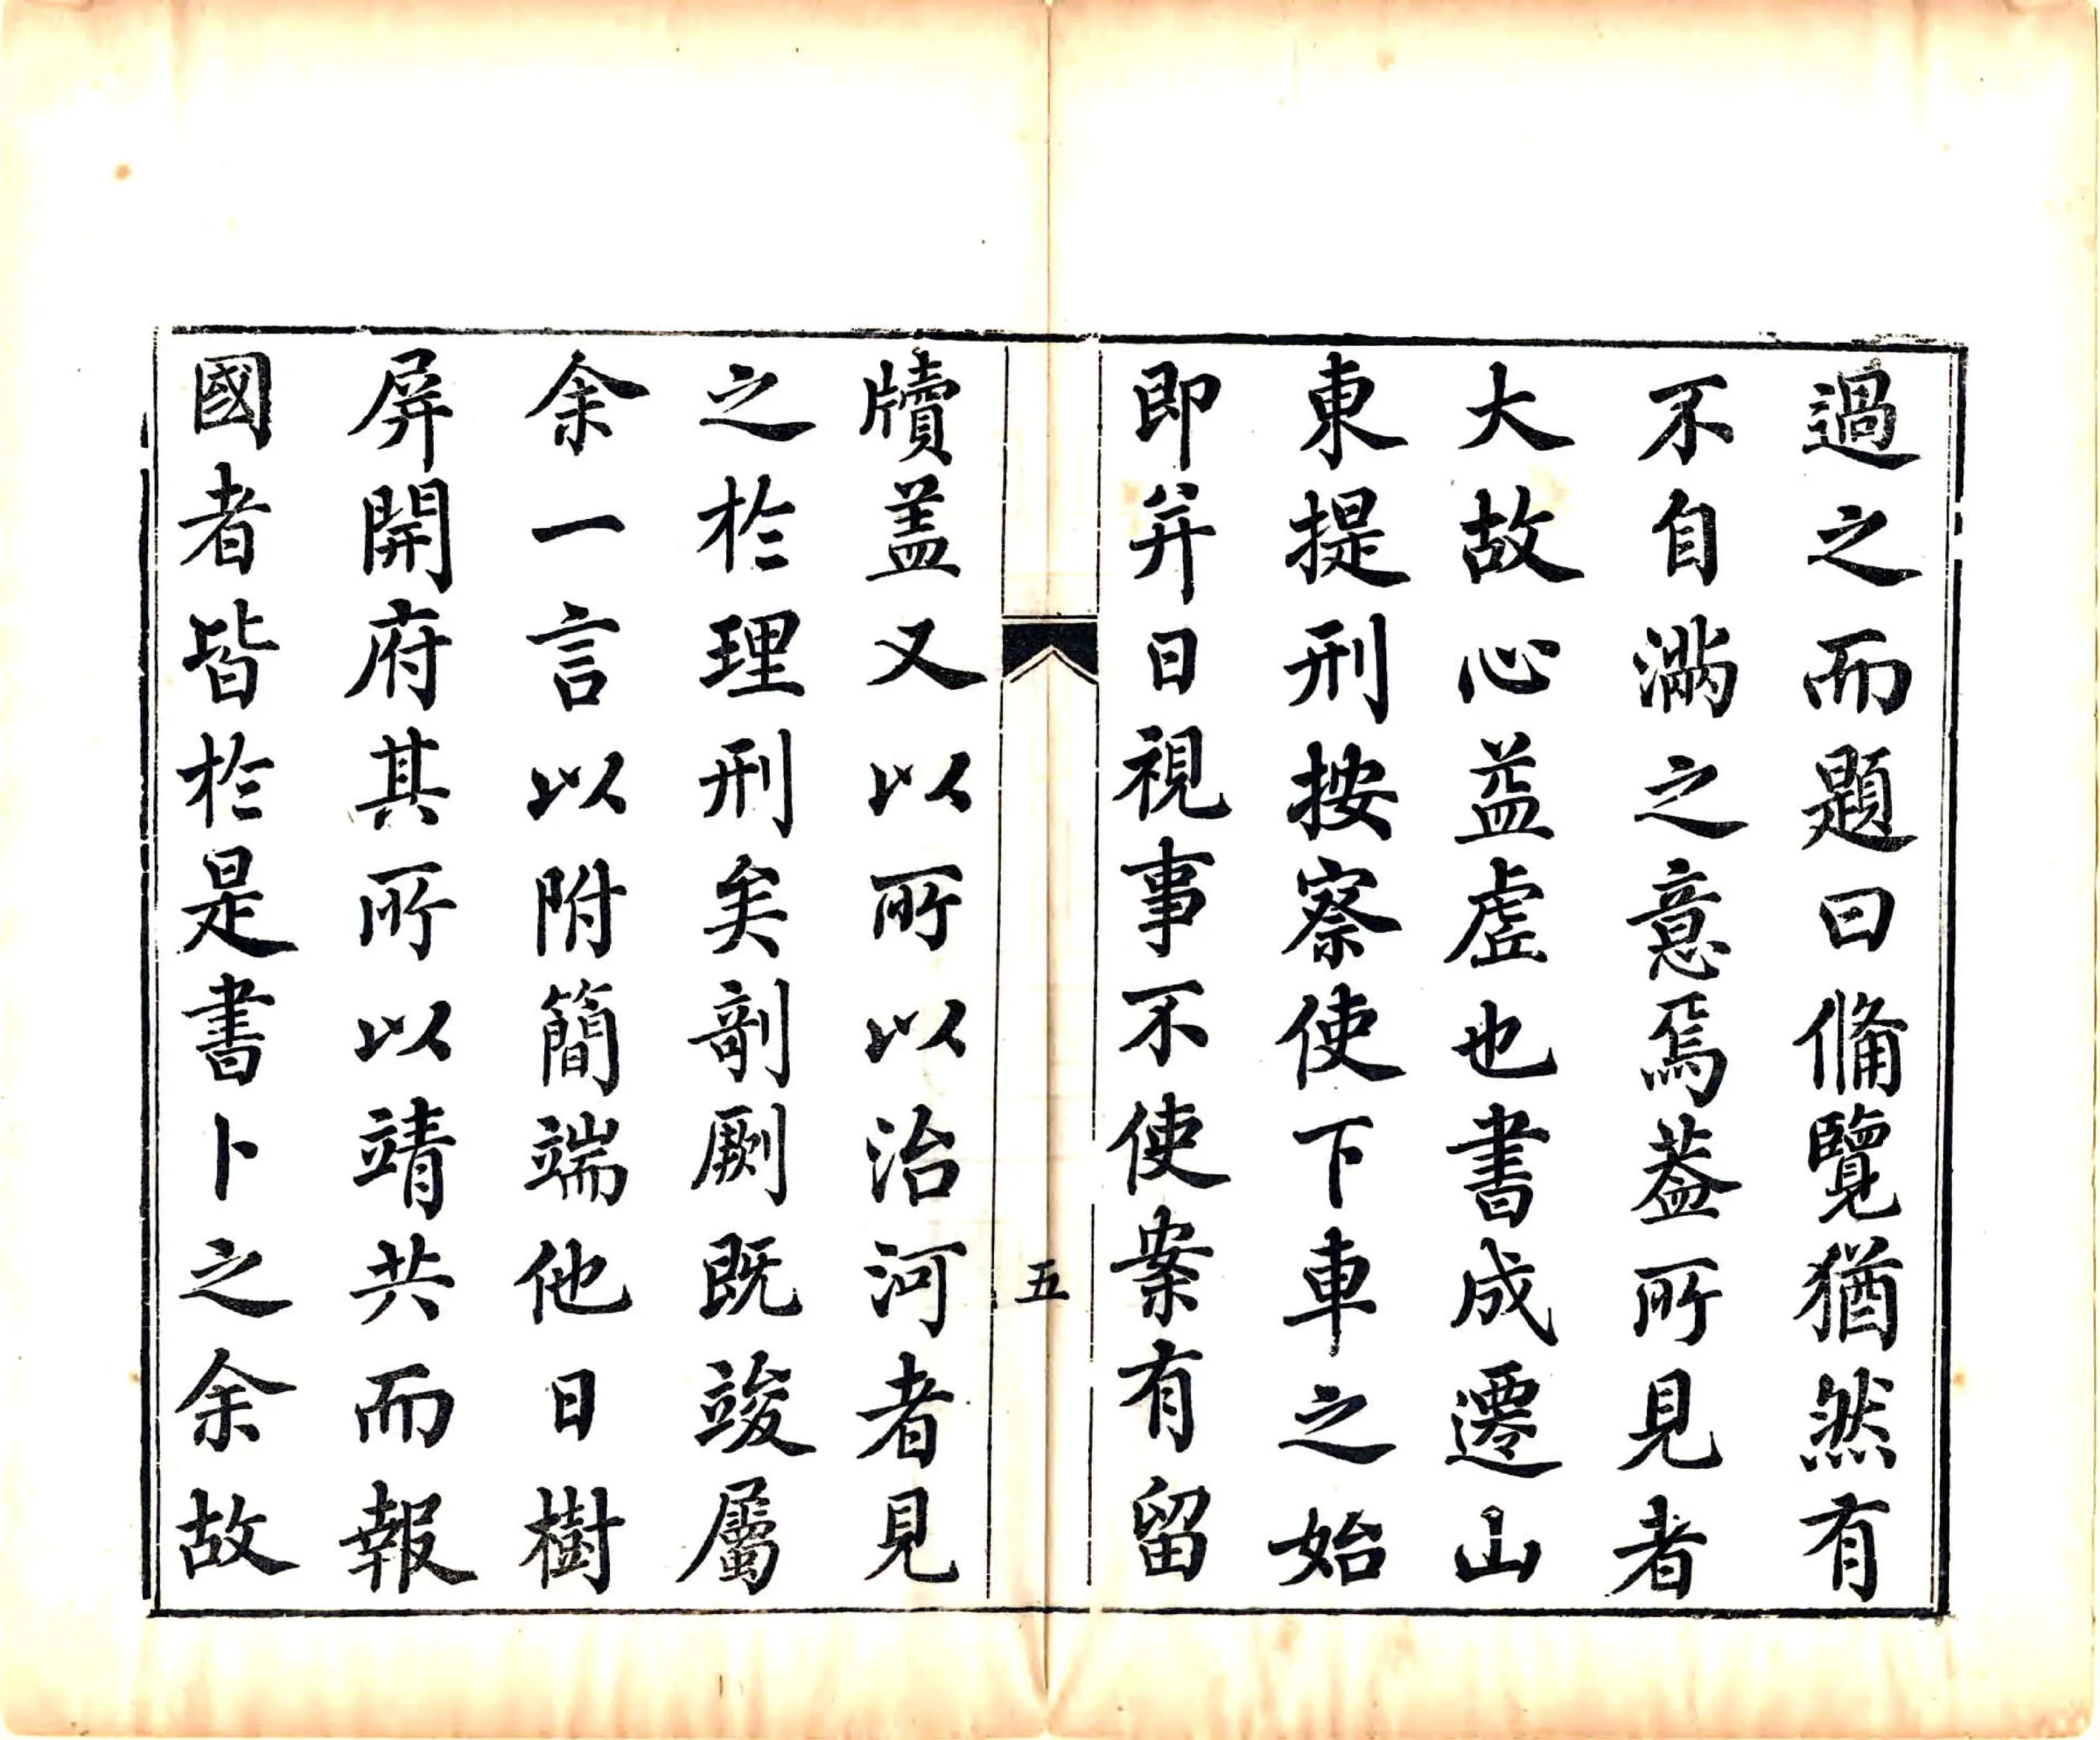 過之而題曰偹覽猶然有
不自滿之意焉葢所見者
大故心益虗也書成遷山
東提刑按察使下車之始
即并日視事不使案有留
五
牘盖又以所以治河者見
之於理刑矣剞劂既竣屬
余一言以附簡端他日樹
屏開府其所以靖共而報
國者皆於是書卜之余故